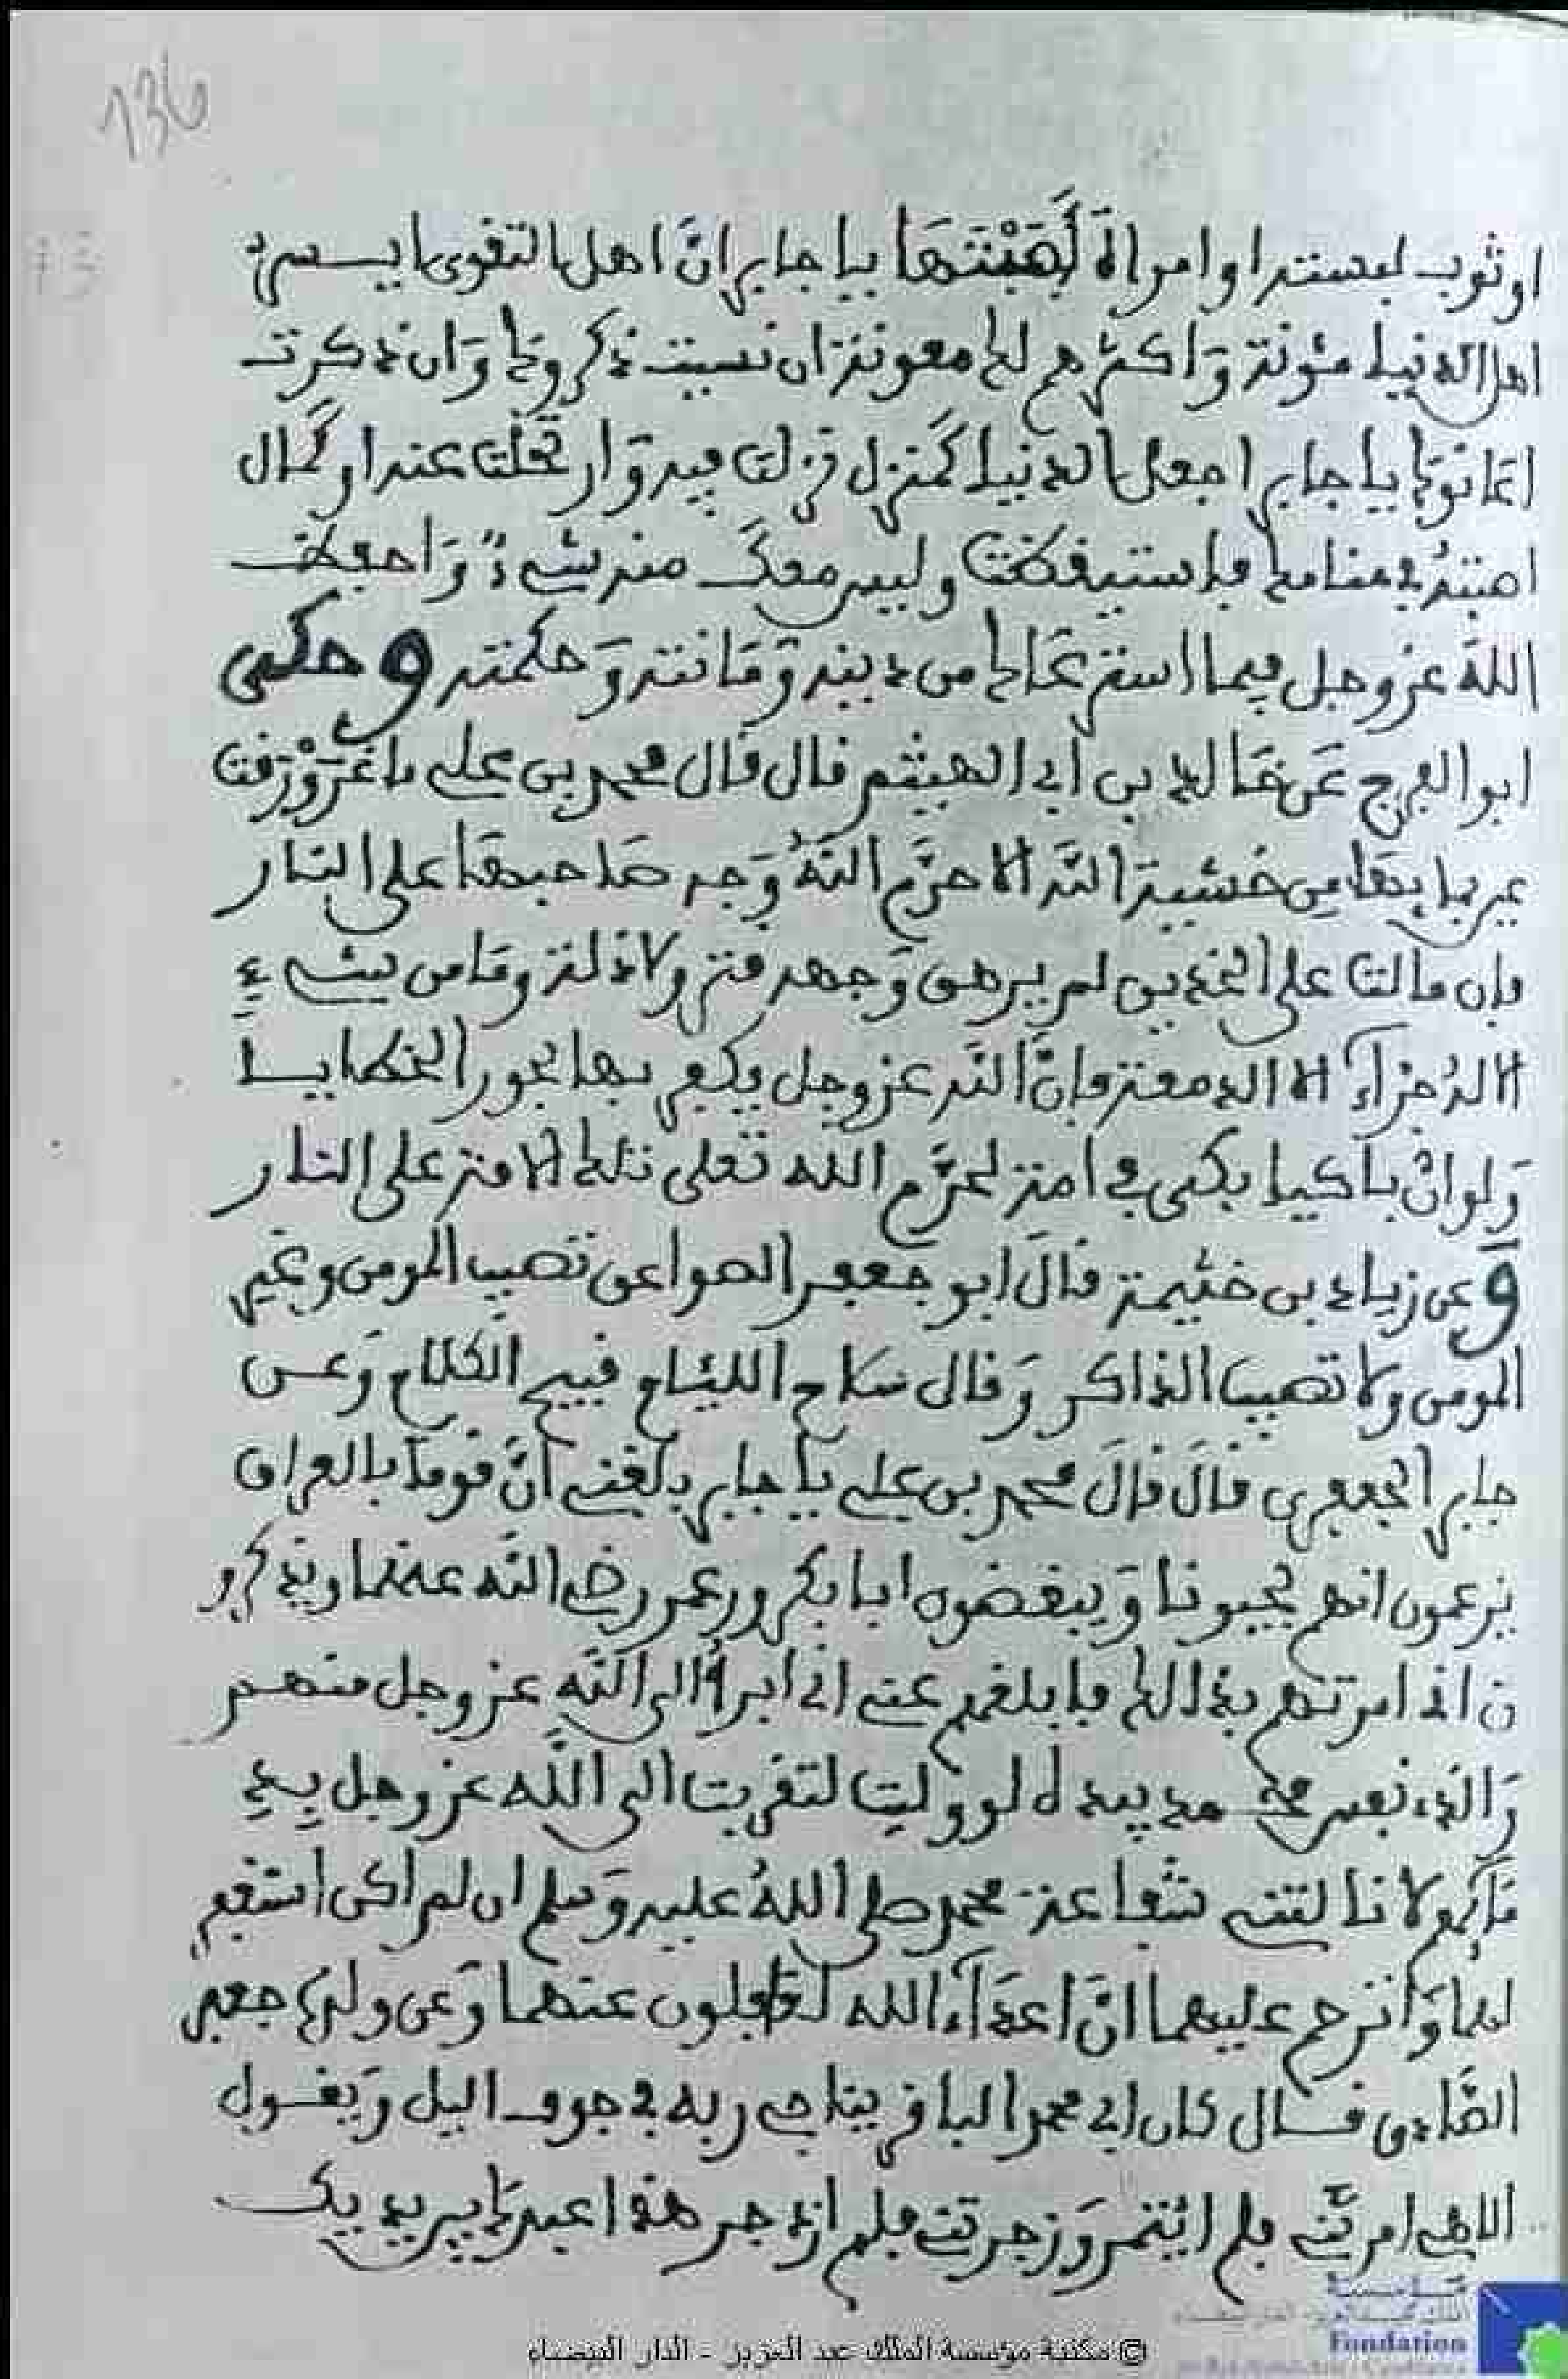 136
او ثوب لبسته او امراة لَّهَبْتَهَا يا جابر انَّ اهل التقوى ايسر
اهل الدنيا مئونة وَاكثرهم لك معونة ان نسيت ذكروك وَان ذكرت
اعَانوك يا جابر اجعل الدنيا كَمنزل نزلت فيه وَارتحلت عنه او كمَال
اصبتهُ في منامك فاستيقظت وليس معكَ منه شيءٌ وَاحفظ
اللهَ عز وجل فيما استرعَاك من دينه وَمَانته وَحكمته وحكى
ابو الفرج عَن خَالد بن ابي الهيثم قال قال محمد بن علي ما اغرَوْرَقت
عين بمايهَا مِن خَشية اللَّه الا حرَّم اللهُ وَجه صَاحبهَا على النار
فإن سالت على الخدين لم يرهق وَجهه قتر ولا ذلة ومَا من شيءٍ
الا لهُ جزآء الا الدمعة فإنَّ اللَّه عز وجل يكفر بها بحور الخطايا
وَلو انَّ باكيا بكى في امة لحرَّم الله تعلى تلك الامة على النار
وَعن زياد بن خثيمة قالَ ابو جعفر الصواعق تصيب المومن وغير
المومن ولا تصيب الذاكر وَقال سَلاح اللئام قبيح الكلام وَعن
جابر الجعفي قالَ قالَ محمد بن علي يا جابر بلغني انَّ قومًا بالعراق
يزعمون انهم يحبوننا وَيبغضون ابا بكر وعمر رضي اللَّه عنهما ويذكرو
ن اني امرتهم بذالك فابلغهم عني اني ابرأُ الى اللَّه عز وجل منهم
وَالذي نفس محمد بيده لو وليت لتقربت الى اللَّه عز وجل بدِ
مَايهم ولا نالتني شفاعة محمد صلى اللهُ عليه وَسلم ان لم اكن استغفر
لهما وَاترحم عليهما انَّ اعدَآءَ الله لغَافلون عنهما وَعن ولده جعفر
الصَّادق قال كان ابي محمد الباقر يناجي ربه في جوف اليل وَيقول
الاهي امرتَني فلم ائتمر وَزجرتني فلم ازدجر هذا عبدكَ بين يديك
© مكتبة مؤسسة الملك عبد العزيز - الدار البيضاء
Fondation